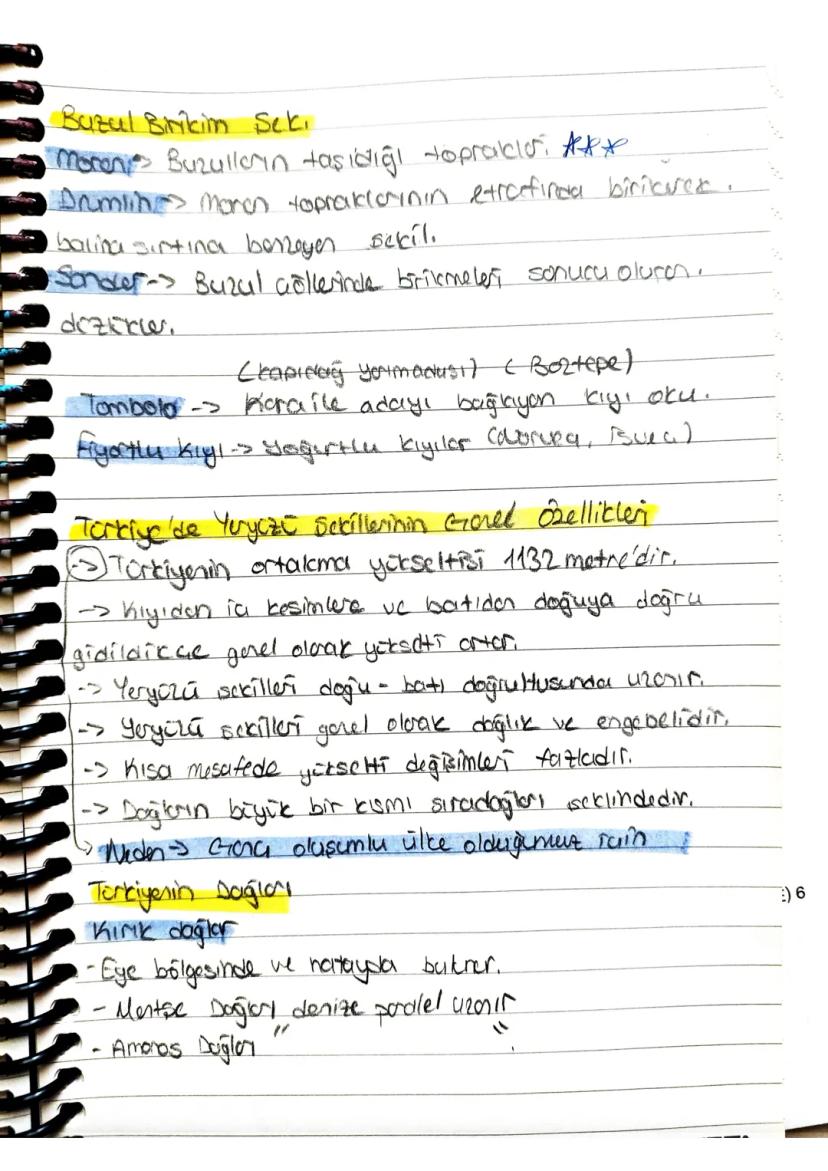 Buzul Birikim Şek.
Moren -> Buzulların taşıdığı topraklar. ***
Drumlin -> Moren topraklarının etrafında birikerek.
balina sırtına benzeyen şekil.
Sander -> Buzul göllerinde birikmeleri sonucu oluşan.
düzlükler.
(kapıdağ yarımadası) ( Boztepe)
Tombolo -> Kara ile adayı bağlayan kıyı oku.
Fiyortlu Kıyı -> Yoğurtlu kıyılar
Türkiye'de Yeryüzü Şekillerinin Genel Özellikleri
-> Türkiyenin ortalama yükseltisi 1132 metre'dir.
-> Kıyıdan iç kesimlere ve batıdan doğuya doğru
gidildikçe genel olarak yükselti artar.
-> Yeryüzü şekilleri doğu - batı doğrultusunda uzanır.
-> Yeryüzü şekilleri genel olarak dağlık ve engebelidir.
-> Kısa mesafede yükselti değişimleri fazladır.
-> Dağların büyük bir kısmı sıradağlar şeklindedir.
-> Neden -> Genç oluşumlu ülke olduğumuz için
Türkiyenin Dağları
:) 6
Kırık dağlar
- Ege bölgesinde ve hatayda bulunur.
- Menteşe Dağları denize paralel uzanır
- Amanos Dağları " "